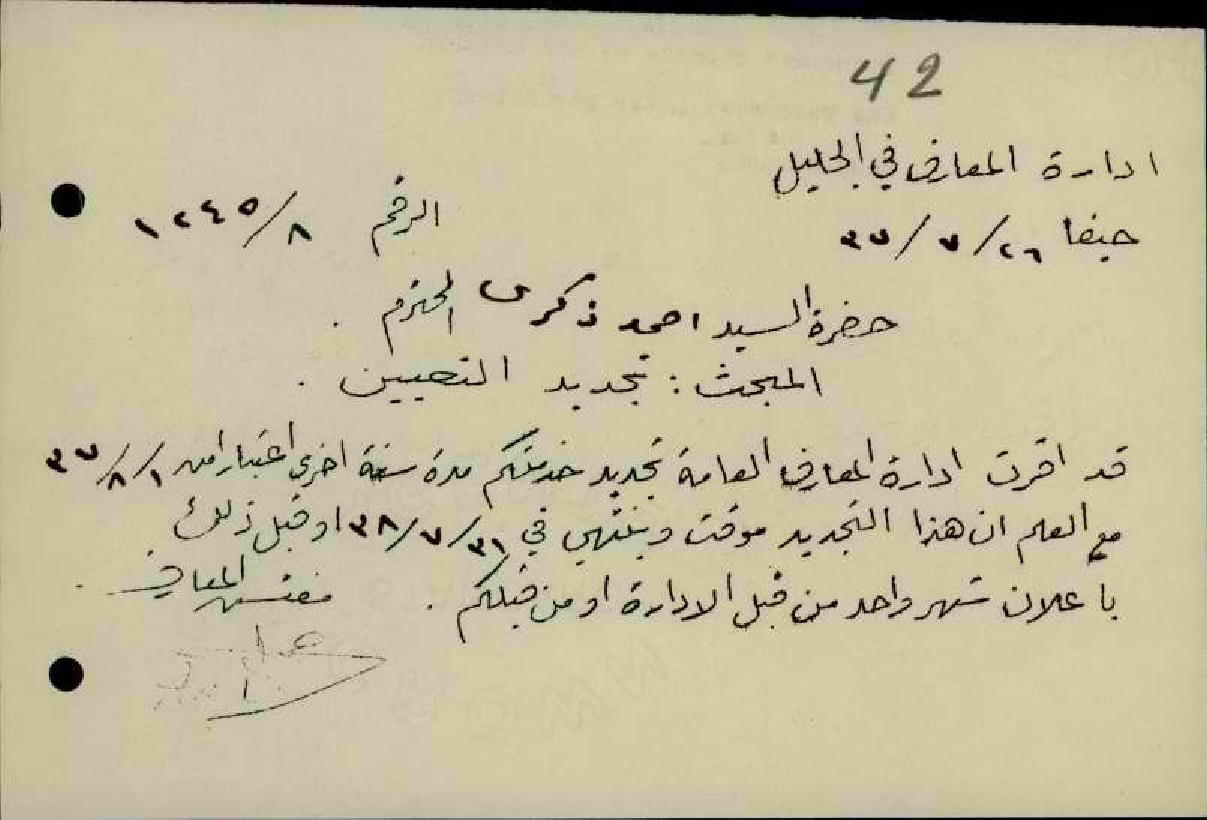 42
ادارة المعارف في الجليل
حيفا ٢٦/٧/٣٧ الرقم ١٢٤٥/٨
حضرة السيد احمد ذكرى المحترم .
المبحث : تجديد التعيين .
قد اقرت ادارة المعارف العامة تجديد خدمتكم مدة سنة اخرى اعتبارا من ٣٧/٨/١
مع العلم ان هذا التجديد موقت وينتهي في ٣٨/٧/٣١ او قبل ذلك
باعلان شهر واحد من قبل الادارة او من قبلكم . مفتش المعارف .